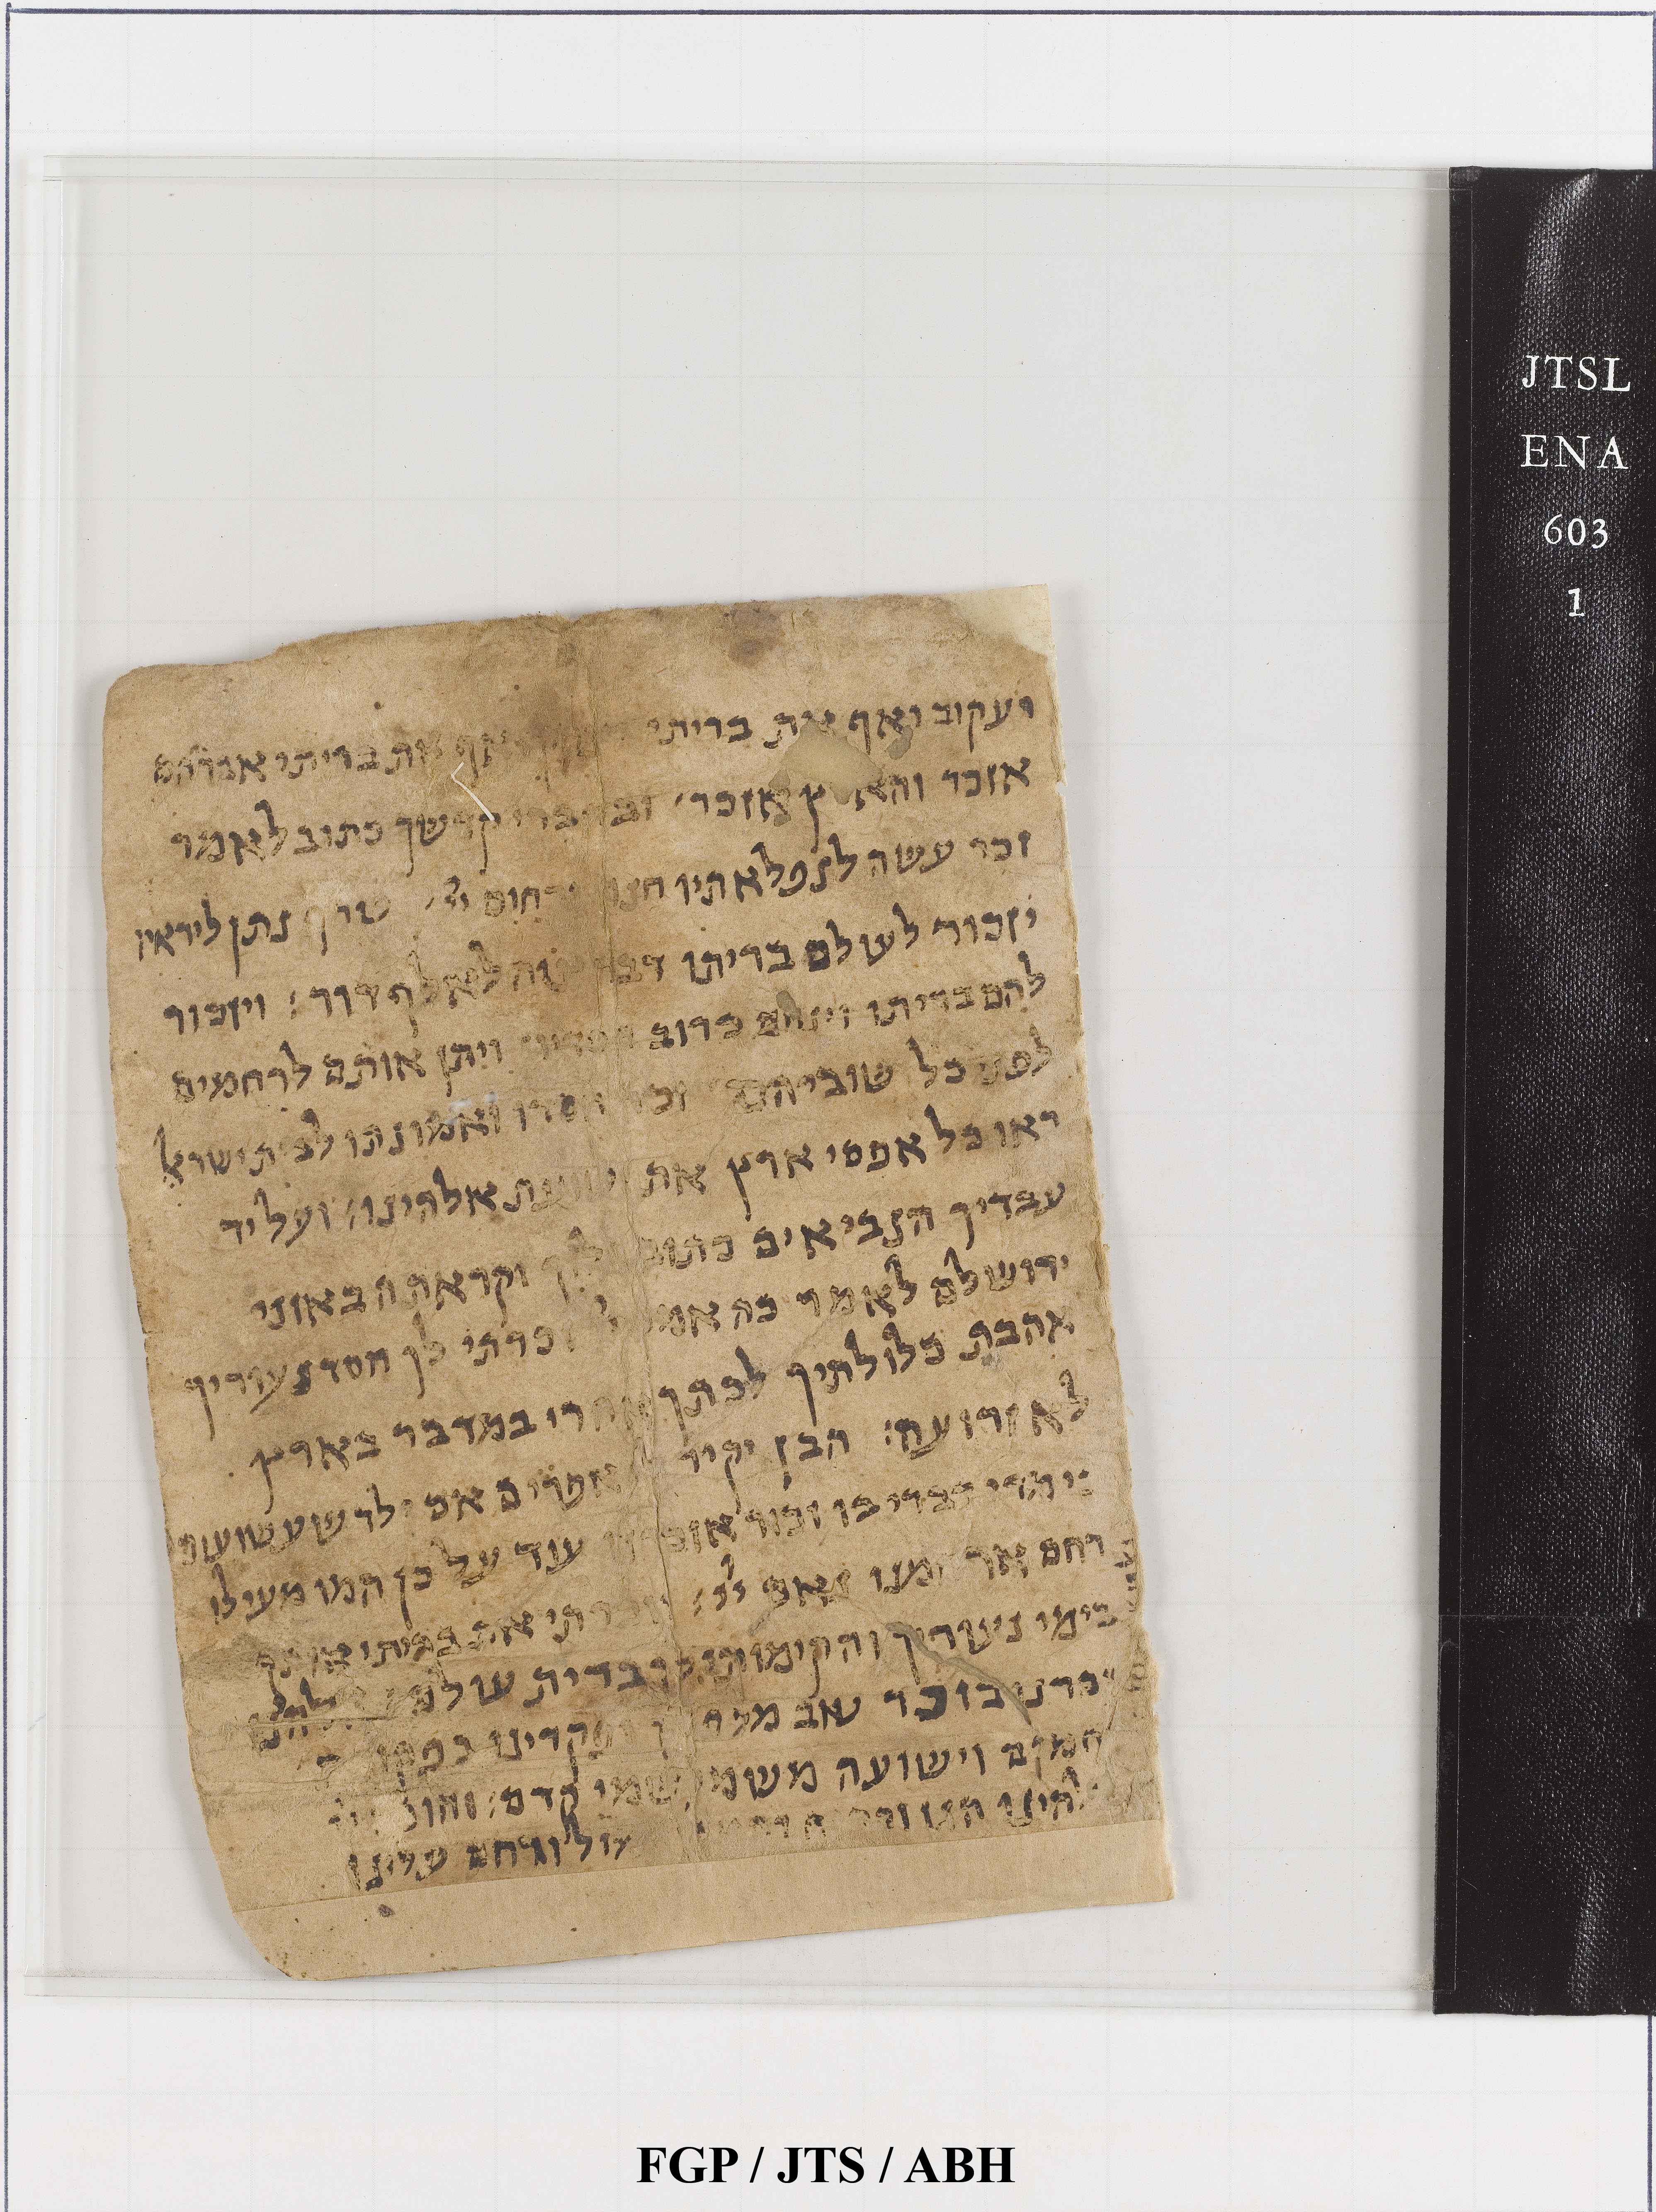 יעקוב ואף את בריתי ואף את בריתי אברהם
אזכר והארץ אזכר׳ ובדברי קדשך כתוב לאמר
זכר עשה לנפלאתיו חנון ורחום טרף נתן ליראיו
יזכור לעולם בריתו דבר צוה לאלף דור׃ ויזכור
להם בריתו וינחם כרוב חסדיו ויתן אותם לרחמים
לפני כל שוביהם זכר חסדו ואמונתו לבית ישראל
ראו כל אפסי ארץ את ישועת אלהינו׃ ועל יד
עבדיך הנביאים כתוב הלך וקראת באזני
ירושלם לאמר כה אמר זכרתי לך חסד נעוריך
אהבת כלולתיך לכתך אחרי במדבר בארץ
לא זרועה׃ הבן יקיר לי אפרים אם ילד שעשועים
כי מדי דברי בו זכור אזכרנו עוד על כן המו מעי לו
רחם ארחמנו נאם ייי׃ וזכרתי את בריתי אותך
בימי נעוריך והקימותי לך ברית עולם׃
זכרנו בזכר טוב מלפניך ופקדינו בפקודת
רחמים וישועה משמי שמי קדם׃
עלינו
JTSL
ENA
603
1
FGP / JTS / ABH